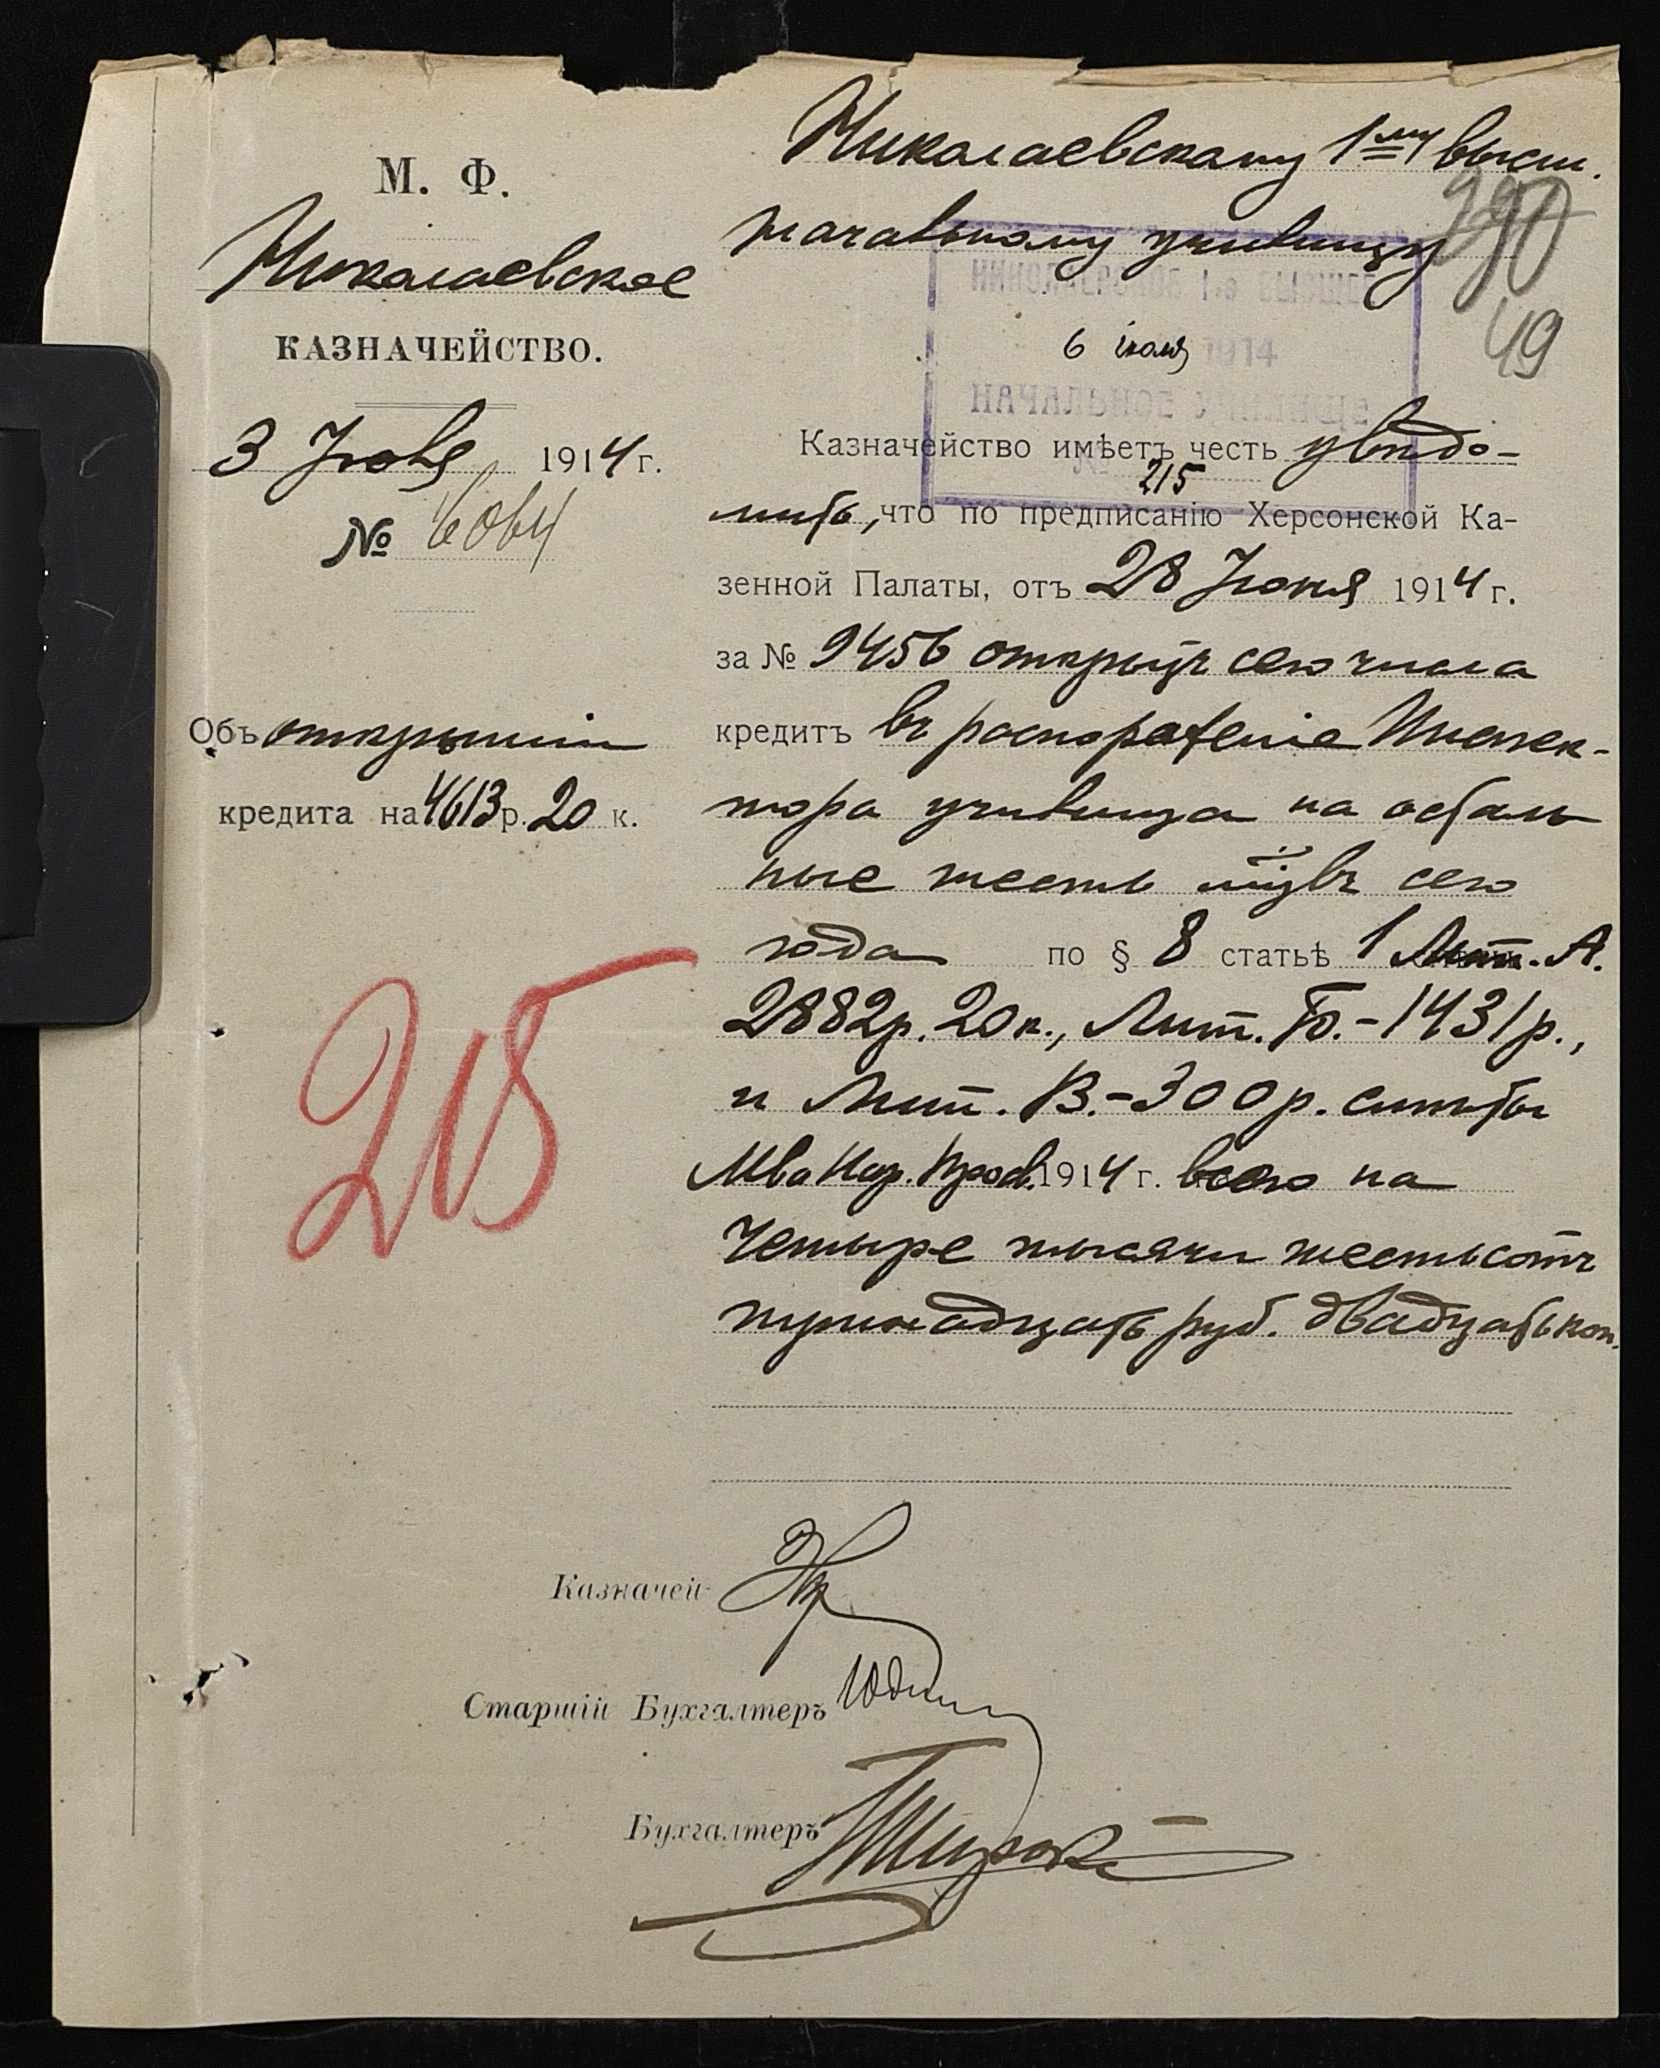 М. Ф.
Николаевское
КАЗНАЧЕЙСТВО.
3 Іюля 1914 г.
№ 6064
Объ открытіи
кредита на 4613 р. 20 к.
215
Николаевскому 1му высш.
начальному училищу
290
49
НИКОЛАЕВСКОЕ 1-е ВЫСШЕЕ
6 іюля 1914
НАЧАЛЬНОЕ УЧИЛИЩЕ
№ 215
Казначейство имѣетъ честь увѣдо-
мить, что по предписанію Херсонской Ка-
зенной Палаты, отъ 28 Іюня 1914 г.
за № 9456 открытъ сего числа
кредитъ въ распоряженіе Инспек-
тора училища на осталь
ные шесть м-цвъ сего
года по § 8 статьѣ 1 Лит. А.
2882р. 20к., Лит. Б.-1431р.,
и Лит. В.-300р. смѣты
Мва Нар. Просв. 1914 г. всего на
Четыре тысячи шестьсотъ
тринадцать руб. двадцать коп.
Казначей
Старшій Бухгалтеръ Юдин
Бухгалтеръ